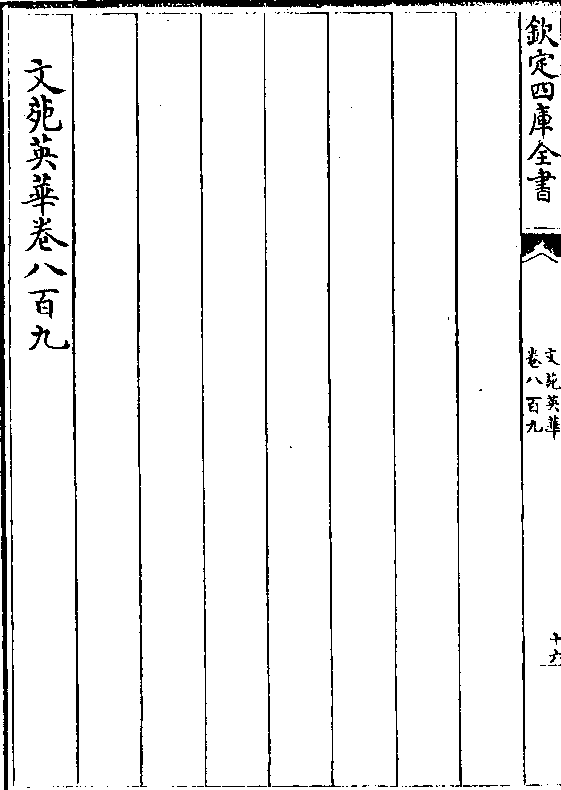 欽定四庫全書
文苑英華
卷八百九
十六
文苑英華卷八百九